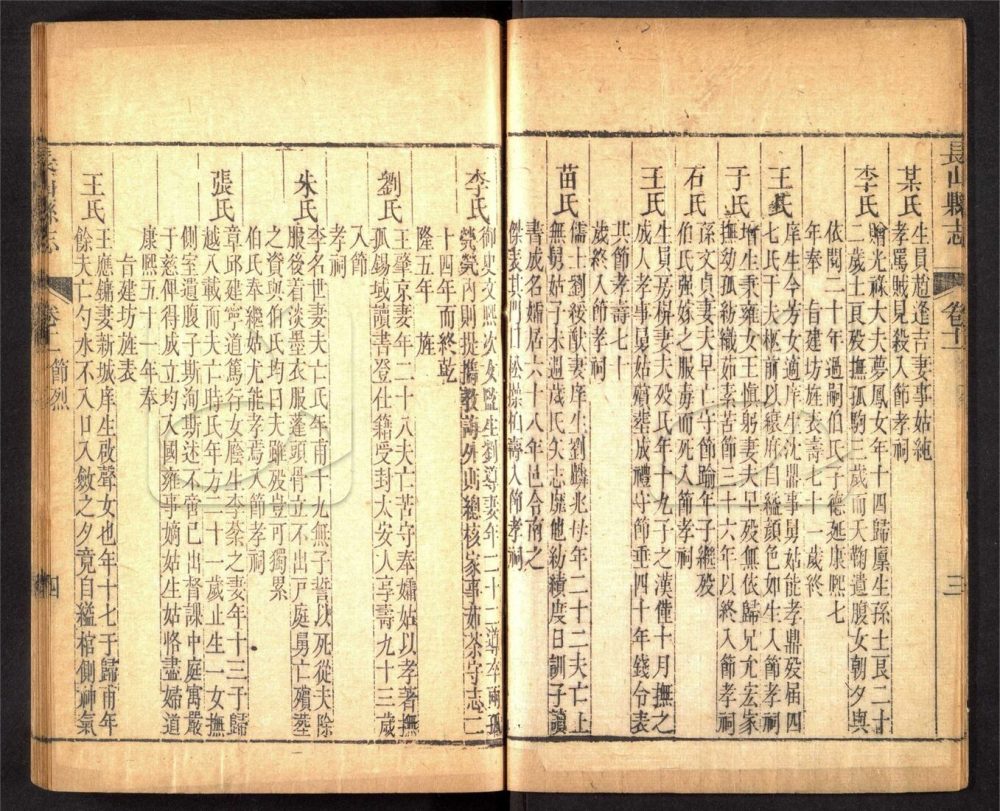 長山縣志 卷十二 三
某氏 生員趙逢吉妻事姑純
孝罵賊見殺入節孝祠
李氏 贈光祿大夫夢鳳女年十四歸廩生孫士艮二十
二歲士艮殁撫孤駒三歲而夭鞠遺腹女朝夕與
依閱二十年過嗣伯氏子德延康熙七
年奉 旨建坊旌表壽七十一歲終
王氏 庠生令芳女適庠生沈鼎事舅姑能孝鼎殁屆四
七氏于大柩前以縗麻自縊顔色如生人節孝祠
于氏 增生秉雍女王慎躬妻夫早殁無依歸兄允宏家
撫幼孤紡織苦節三十六年以終入節孝祠
石氏 孫文貞妻夫早亡守節踰年子繼殁
伯氏强嫁之服毒而死入節孝祠
王氏 生員房枏妻夫殁氏年十九子之漢僅十月撫之
成人孝事舅姑殯塟成禮守節垂四十年錢令表
其節孝壽七十
歲終入節孝祠
苗氏 儒士劉綏猷妻庠生劉麟兆母年二十二夫亡上
無舅姑子未週歲氏矢志靡他紡績度日訓子讀
書成名孀居六十八年邑令南之
傑表其門曰松傑伯壽入節孝祠
李氏 御史文熙次女監生劉導妻年二十二導卒兩孤
煢煢內則提攜教誨外則總核家事如荼守志二
十四年而終乾
隆五年 旌
劉氏 王肇京妻年二十八夫亡苦守奉孀姑以孝著撫
孤錫域讀書登仕籍受封太安人享壽九十三歲
入節
孝祠
朱氏 李名世妻夫亡氏年甫十九無子誓以死從夫除
服後着淡墨衣服蓬頭骨立不出戸庭舅亡殯塟
之資與伯氏均曰夫雖殁豈可獨累
伯氏奉繼姑尤能孝焉入節孝祠
張氏 章邱建寧道篤行女廕生李棻之妻年十三于歸
越八載而夫亡時氏年方二十一歲止生一女撫
側室遺腹子斯洵斯述不啻已出督課中庭寓嚴
于慈俾得成立均入國雍事嫡姑生姑恪盡婦道
康熙五十一年奉
旨建坊旌表
王氏 王應鏞妻新城庠生啟聲女也年十七于歸甫年
餘夫亡勺水不入口入斂之夕竟自縊棺側神氣
長山縣志 卷十二 節烈 四